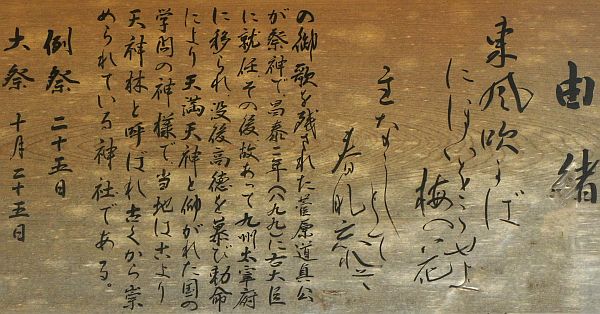 由緒
東風吹かば
にほひをこせよ
梅の花
主なしとて
春な忘れそ
の御歌を残された菅原道真公
が祭神で昌泰二年(八九九)に右大臣
に就任その後故あって九州太宰府
に移られ、没後高徳を慕び勅命
により天満天神と仰がれた国の
学問の神様で当地は古より
天神林と呼ばれ古くから崇
められている神社である。
例祭 二十五日
大祭 十月二十五日